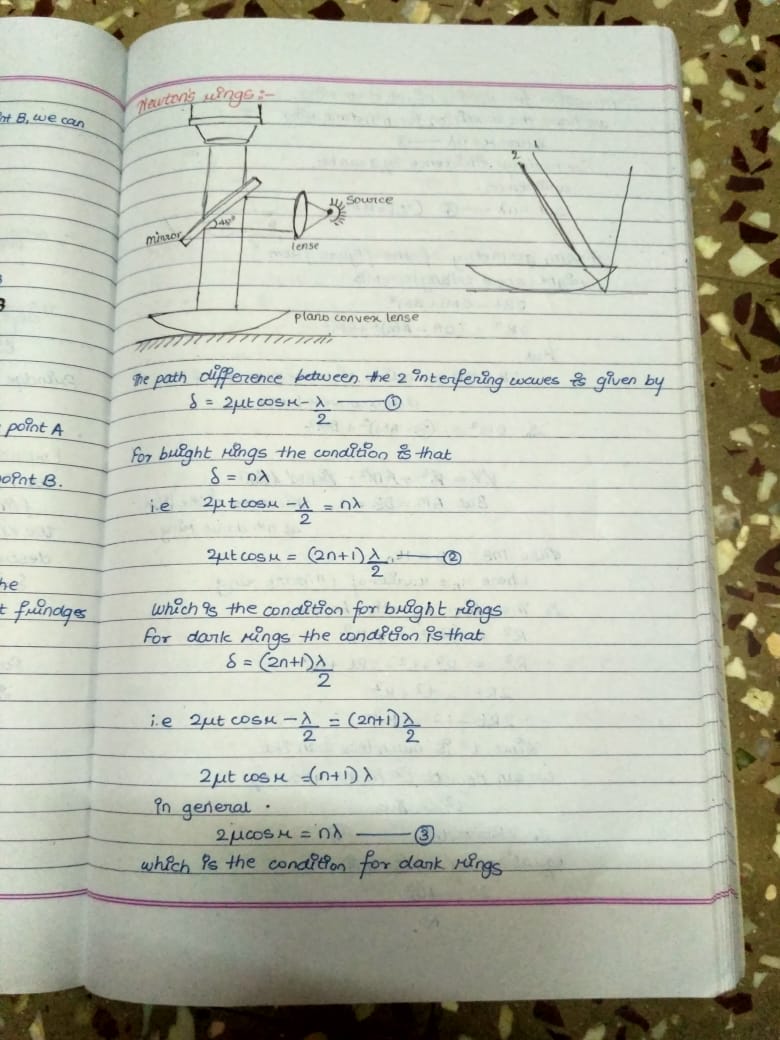 nt B, we can
point A
point B.
he
t frindges
Newton's rings:-
mirror
45°
Source
lense
plano convex lense
2
1
The path difference between the 2 interfering waves is given by
δ = 2μt cos r - λ/2 —— ①
For bright rings the condition is that
δ = nλ
i.e 2μt cos r - λ/2 = nλ
2μt cos r = (2n+1) λ/2 —— ②
which is the condition for bright rings
For dark rings the condition is that
δ = (2n+1) λ/2
i.e 2μt cos r - λ/2 = (2n+1) λ/2
2μt cos r = (n+1) λ
in general .
2μ cos r = nλ —— ③
which is the condition for dark rings